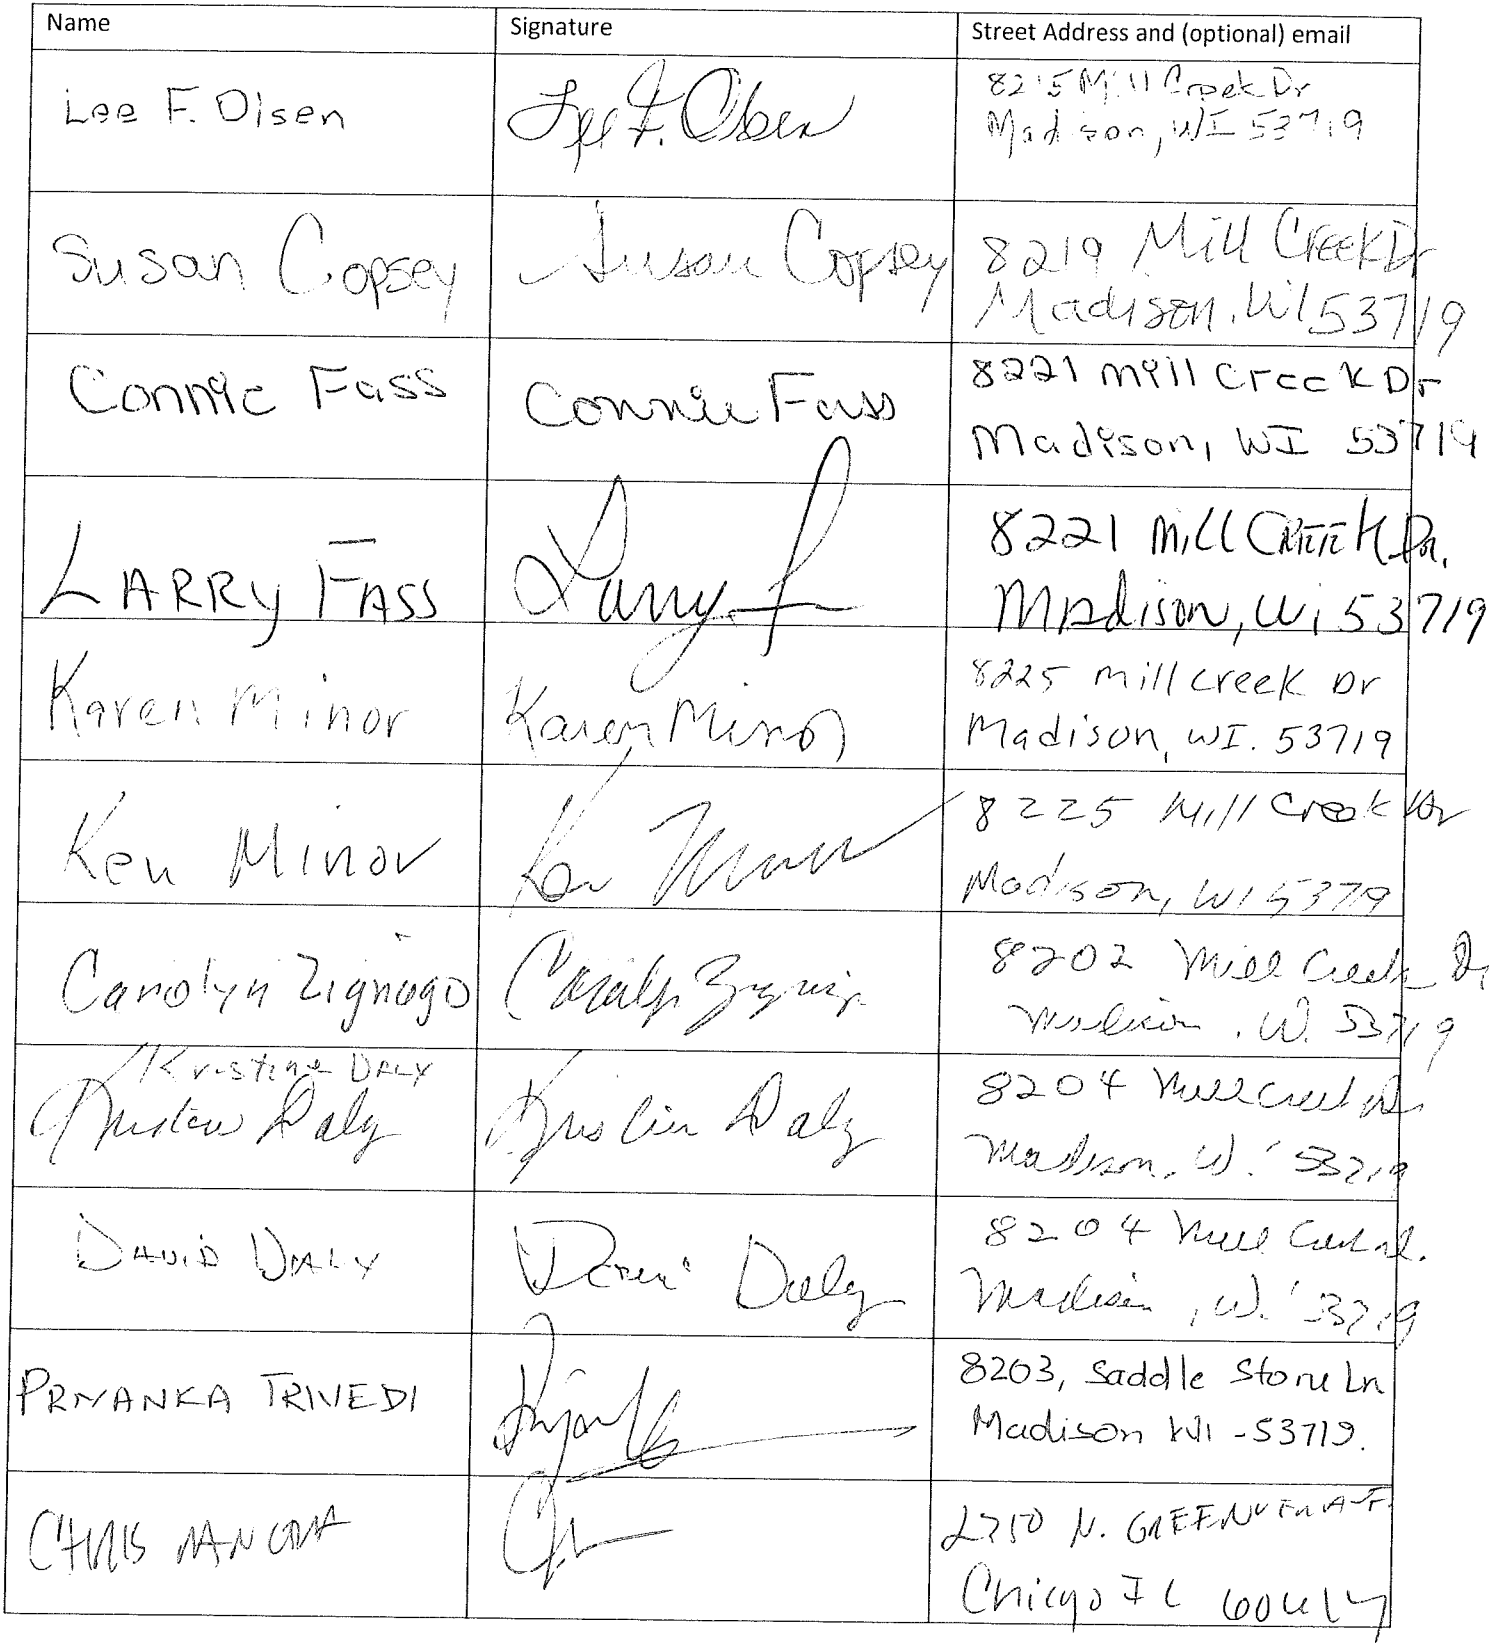 Name Signature Street Address and (optional) email
Lee F. Olsen Lee F. Olsen 8215 Mill Creek Dr
Madison, WI 53719
Susan Copsey Susan Copsey 8219 Mill Creek Dr
Madison, WI 53719
Connie Fass Connie Fass 8221 Mill Creek Dr
Madison, WI 53719
LARRY FASS Larry F 8221 Mill CREEK Dr.
Madison, Wi 53719
Karen Minor Karen Minor 8225 Mill creek Dr
Madison, WI. 53719
Ken Minor Ken Minor 8225 Mill Creek Dr
Madison, WI 53719
Carolyn Zignago Carolyn Zignago 8202 Mill Creek Dr
Madison, Wi 53719
Kristine DALY
Kristine Daly Kristine Daly 8204 Mill Creek Dr
Madison, Wi 53719
DAVID DALY Daly 8204 Mill Creek
Madison, Wi 53719
PRIYANKA TRIVEDI 8203, Saddle Stone Ln
Madison WI - 53719.
CHRIS 2750 N. GREENVIEW AVE
Chicago IL 60614